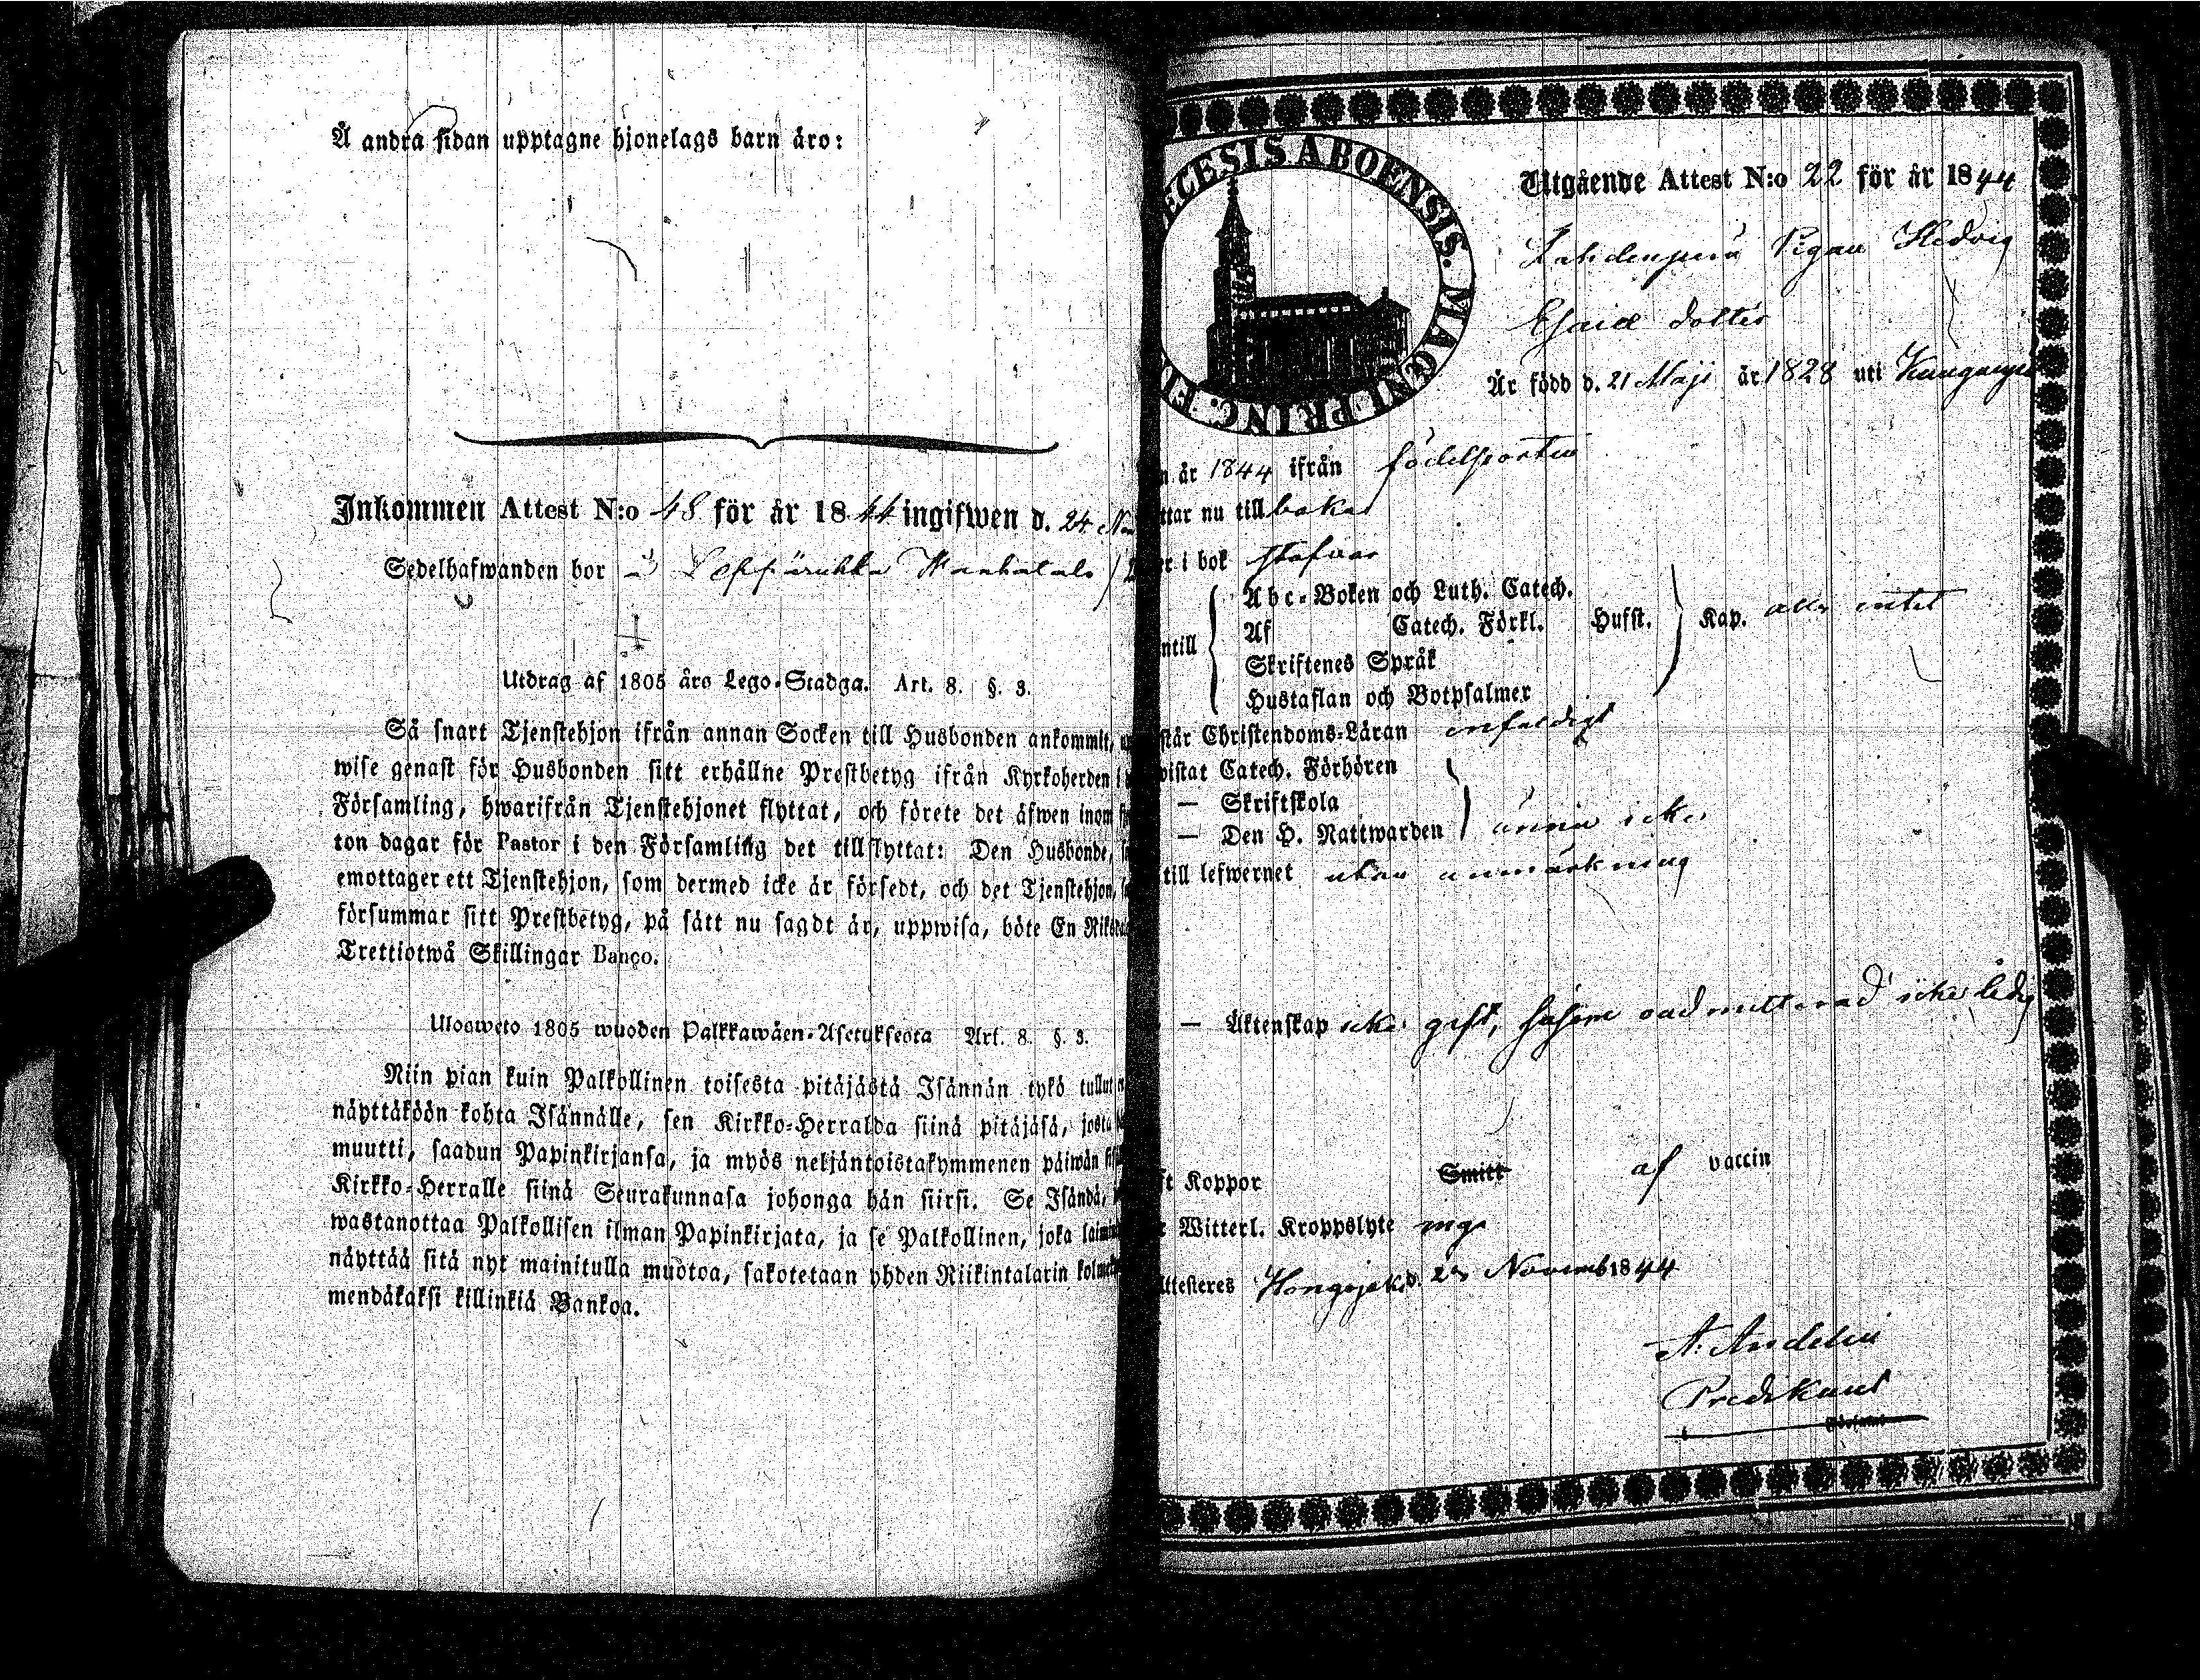 Å andra sidan upptagne hjonelags barn äro:
Inkommen Attest N:o 48 för år 1844 ingifwen d. 24
Sedelhafwanden bor å
Utdrag af 1805 års Lego-Stadga. Art. 8. §. 3.
Så snart Tjenstehjon ifrån annan Socken till Husbonden ankommit,
wise genast för Husbonden sitt erhållne Prestbetyg ifrån Kyrkoherden i
Församling, hwarifrån Tjenstehjonet flyttat, och förete det äfwen inom
ton dagar för Pastor i den Församling det tillflyttat: Den Husbonde,
emottager ett Tjenstehjon, som dermed icke är försedt, och det Tjenstehjon,
försummar sitt Prestbetyg, på sätt nu sagdt är, uppwisa, böte En
Trettiotwå Skillingar Banco.
Ulosweto 1805 wuoden Palkkawäen-Asetuksesta Art. 8. §. 3.
Niin pian kuin Palkollinen toisesta pitäjästä Isännän tykö tullut
näyttäköön kohta Isännälle, sen Kirkko-Herralda siinä pitäjäsä, josta
muutti, saadun Papinkirjansa, ja myös neljäntoistakymmenen päiwän
Kirkko-Herralle siinä Seurakunnasa johonga hän siirsi. Se Isändä,
wastanottaa Palkollisen ilman Papinkirjata, ja se Palkollinen, joka
näyttää sitä nyt mainitulla muotoa, sakotetaan yhden Riikintalarin
mendäkaksi killinkiä Bankoa.
ECESIS ABOENSIS. MAGNI PRINC. FI
Utgående Attest N:o 22 för år 1844
Pigan Hedvig
Esaias dotter
Är född d. 21 Maji år 1828 uti
år 1844 ifrån födelseorten
ttar nu tillbaka
i bok stafvar
Abc-Boken och Luth. Catech.
Af Catech. Förkl. Hufst. Kap. alls intet
ntill
Skriftenes Språk
Hustaflan och Botpsalmer
står Christendoms-Läran enfaldigt
wistat Catech. Förhören
— Skriftskola
— Den H. Nattwarden ännu icke
till lefwernet utan anmärkning
— Äktenskap icke gift,
Koppor Smitt af vaccin
Witterl. Kroppslyte
Attesteres Hongojoki d. Novemb 1844
A. Andelin
Predikant